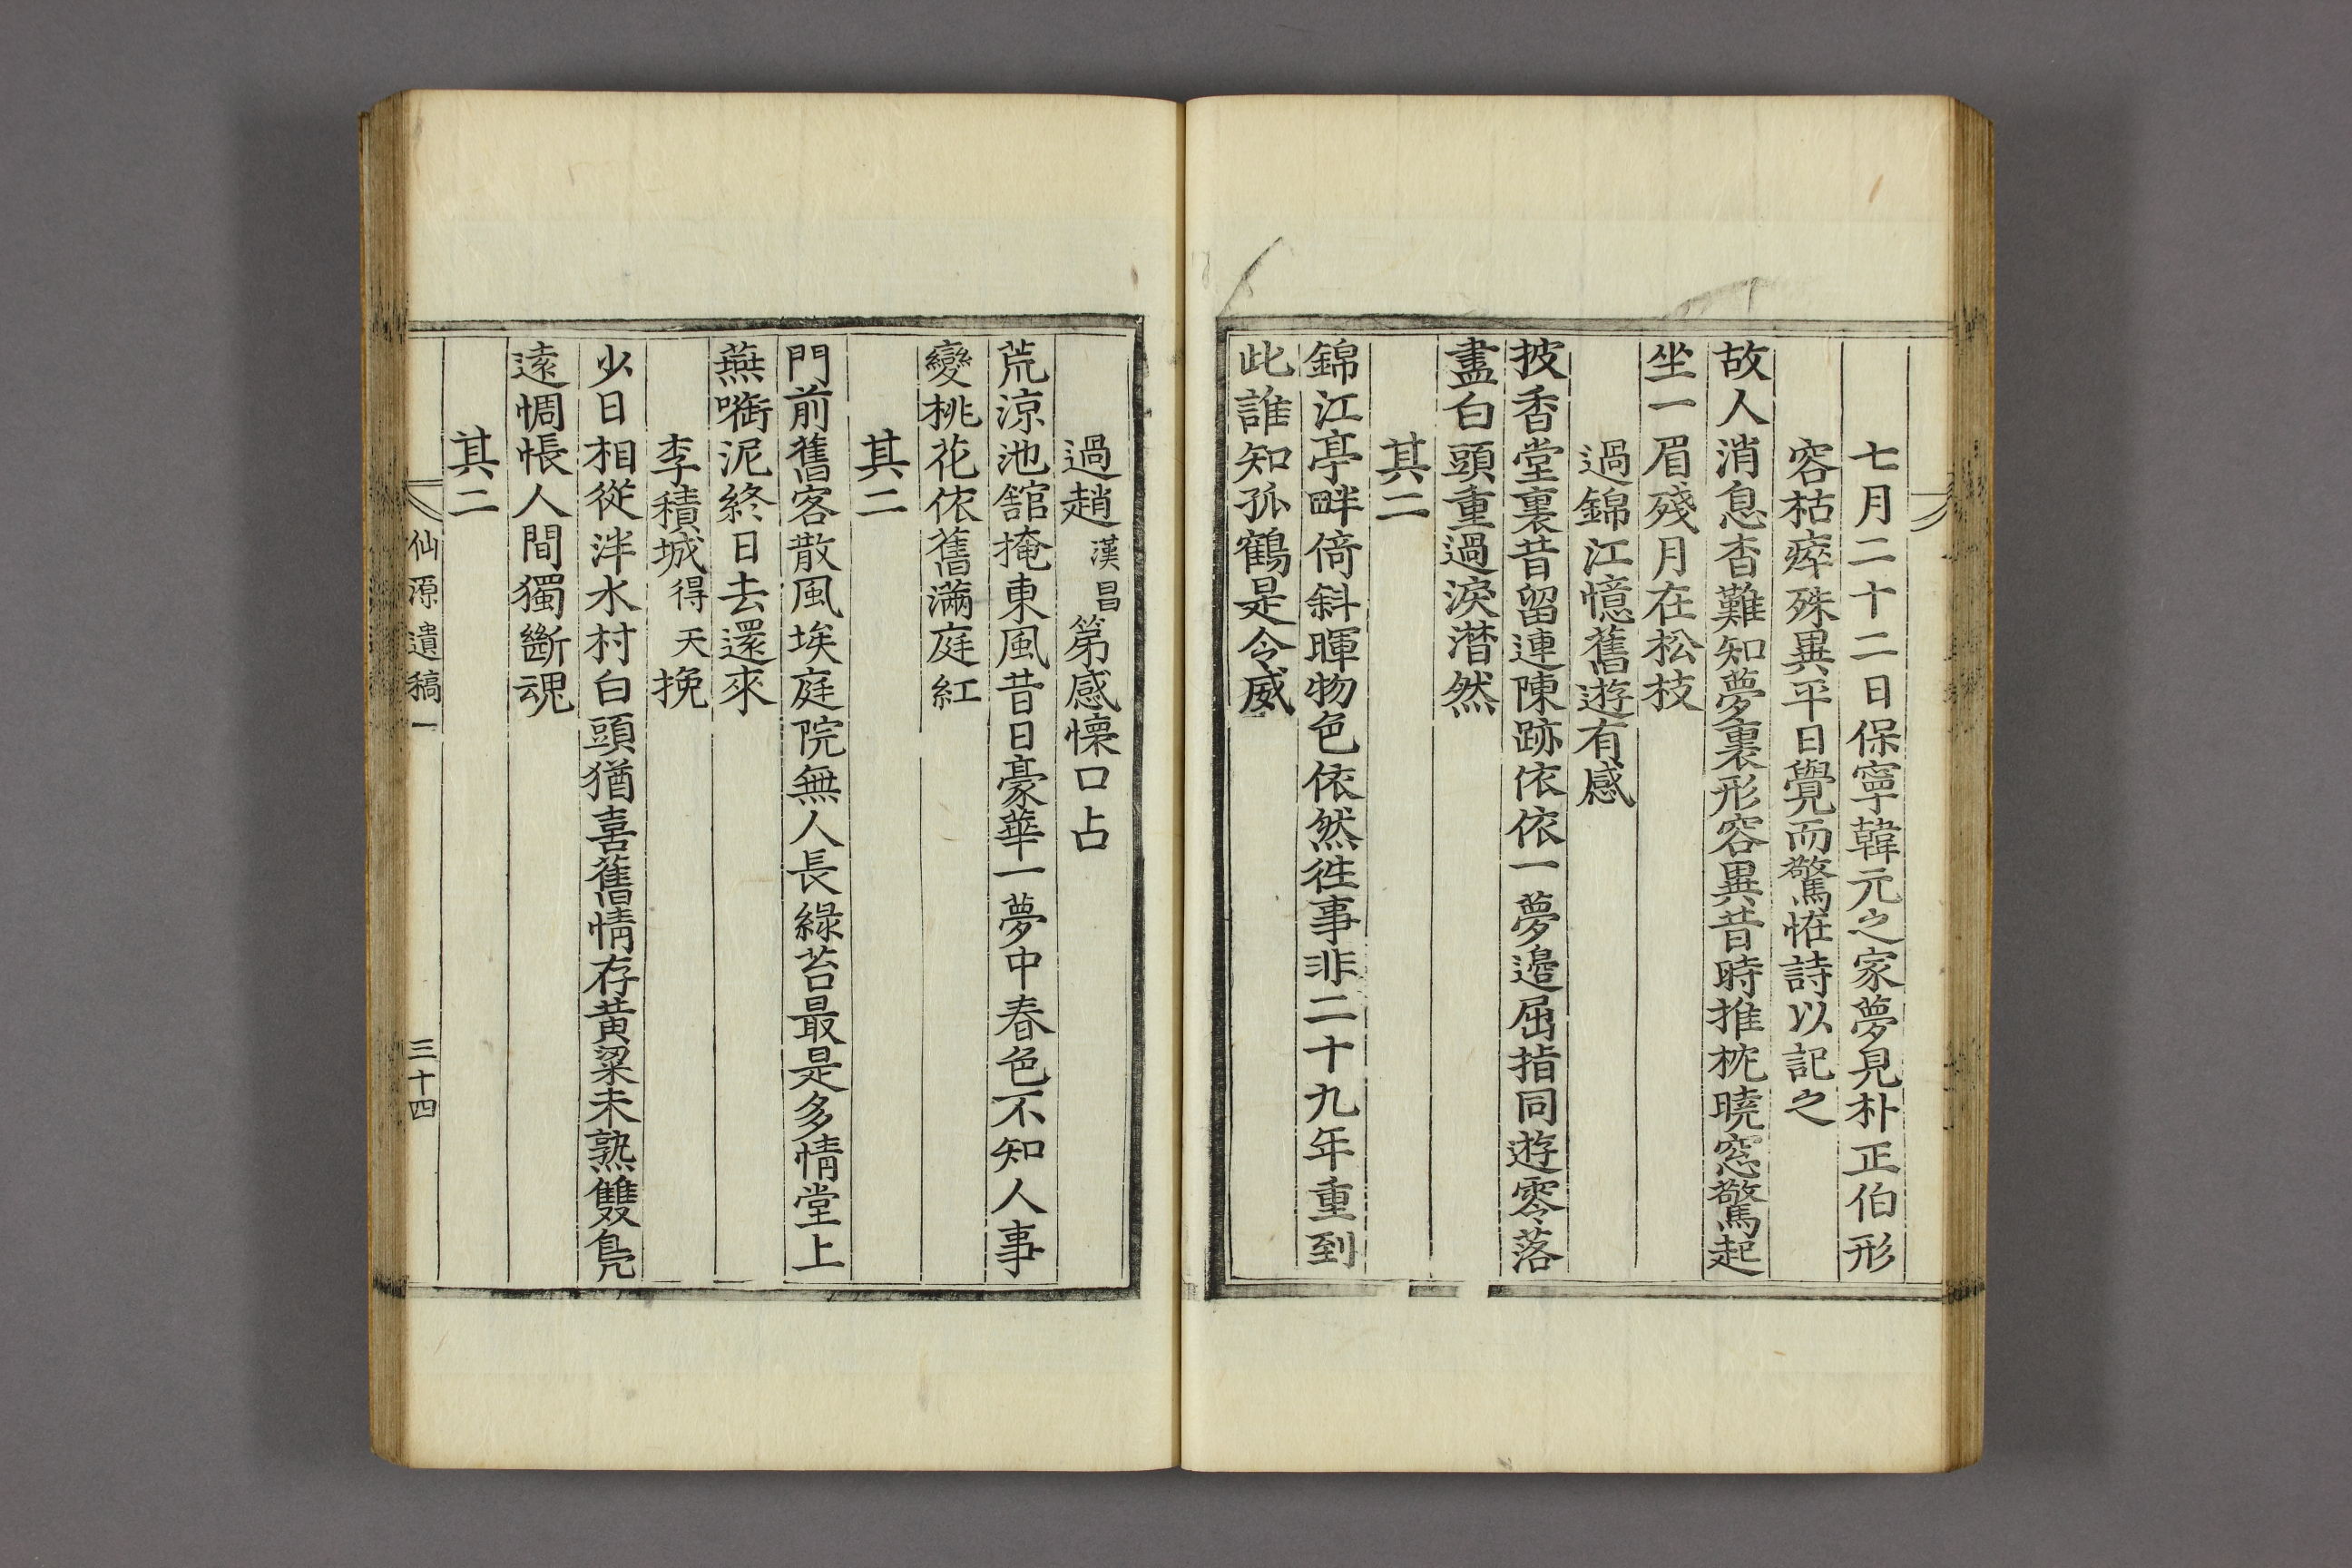 七月二十二日保寧韓元之家夢見朴正伯形
容枯瘁殊異平日覺而驚恠詩以記之
故人消息杳難知夢裏形容異昔時推枕曉窓驚起
坐一眉殘月在松枝
過錦江憶舊遊有感
披香堂裏昔留連陳跡依依一夢邉屈指同遊零落
盡白頭重過淚潛然
其二
錦江亭畔倚斜暉物色依然徃事非二十九年重到
此誰知孤鶴是令威
過趙漢昌第感懷口占
荒涼池舘掩東風昔日豪華一夢中春色不知人事
變桃花依舊滿庭紅
其二
門前舊客散風埃庭院無人長綠苔最是多情堂上
燕㗸泥終日去還來
李積城得天挽
少日相從泮水村白頭猶喜舊情存黃粱未熟雙鳧
遠惆悵人間獨斷魂
其二
仙源遺稿一 三十四